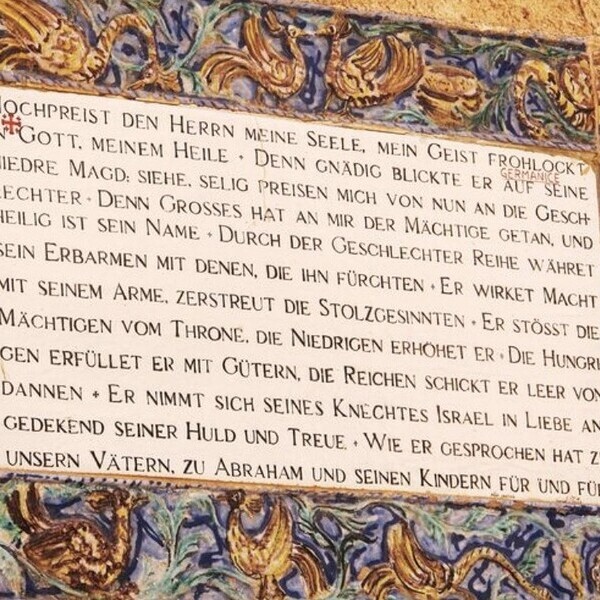 HOCHPREIST DEN HERRN MEINE SEELE, MEIN GEIST FROHLOCKT
GERMANICE
GOTT, MEINEM HEILE • DENN GNÄDIG BLICKTE ER AUF SEINE
NIEDRE MAGD; SIEHE, SELIG PREISEN MICH VON NUN AN DIE GESCH-
LECHTER • DENN GROSSES HAT AN MIR DER MÄCHTIGE GETAN, UND
HEILIG IST SEIN NAME • DURCH DER GESCHLECHTER REIHE WÄHRET
SEIN ERBARMEN MIT DENEN, DIE IHN FÜRCHTEN • ER WIRKET MACHT
MIT SEINEM ARME, ZERSTREUT DIE STOLZGESINNTEN • ER STÖSST DIE
MÄCHTIGEN VOM THRONE, DIE NIEDRIGEN ERHÖHET ER • DIE HUNGRI
GEN ERFÜLLET ER MIT GÜTERN, DIE REICHEN SCHICKT ER LEER VON
DANNEN • ER NIMMT SICH SEINES KNECHTES ISRAEL IN LIEBE AN
GEDEKEND SEINER HULD UND TREUE • WIE ER GESPROCHEN HAT ZU
UNSERN VÄTERN, ZU ABRAHAM UND SEINEN KINDERN FÜR UND FÜR